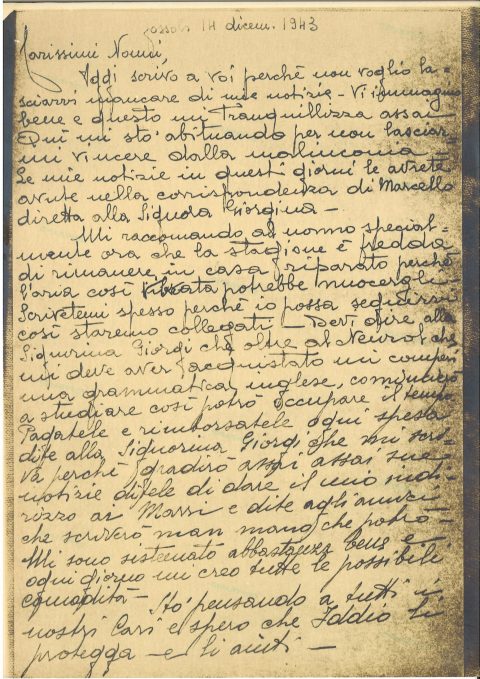 Fossoli 14 dicem. 1943
Carissimi Nonni,
Oggi scrivo a voi perchè non voglio la=
sciarvi mancare di mie notizie - Vi immagino
bene e questo mi tranquillizza assai -
Qui mi sto' abituando per non lasciar=
mi vincere dalla malinconia -
Le mie notizie in questi giorni le avrete
avute nella corrispondenza di Marcello
diretta alla Signora Giorgina -
Mi raccomando al nonno special=
mente ora che la stagione è fredda
di rimanere in casa riparato perchè
l'aria così potrebbe nuocergli
Scrivetemi spesso perchè io possa seguirvi
così staremo collegati - Devi dire alla
Signorina Giorgi che oltre al che
mi deve aver acquistato mi comperi
una grammatica inglese, comincerò
a studiare così potrò occupare il tempo
Pagatele e rimborsatele ogni spesa
dite alla Signorina Giorgi che mi scri=
va perchè gradirò assai assai sue
notizie ditele di dare il mio indi=
rizzo ai Massi e dite agli amici
che scriverò man mano che potrò -
Mi sono sistemato abbastanza bene e
ogni giorno mi creo tutte le possibili
comodità -
Sto' pensando a tutti i
nostri Cari e spero che Iddio li
protegga - e li aiuti -